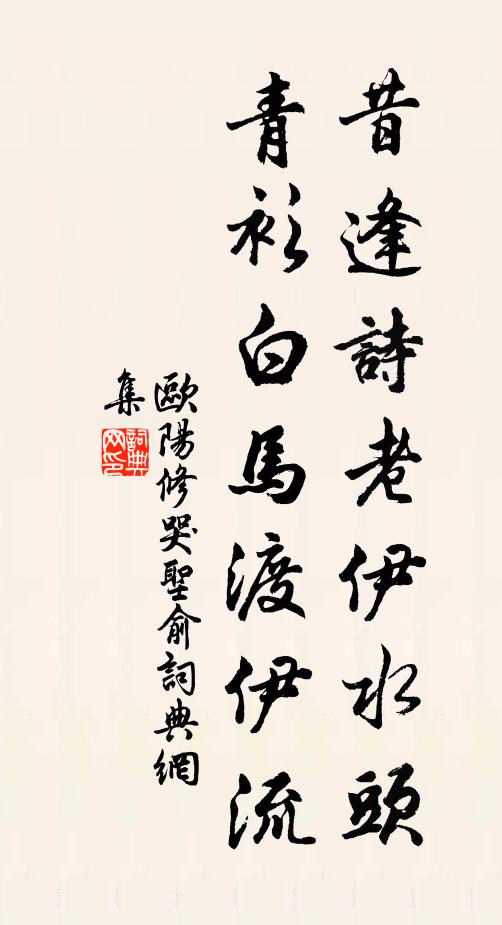 昔逢詩老伊水頭
青衫白馬渡伊流
歐陽修哭聖俞詞典網
集
詞典
网印